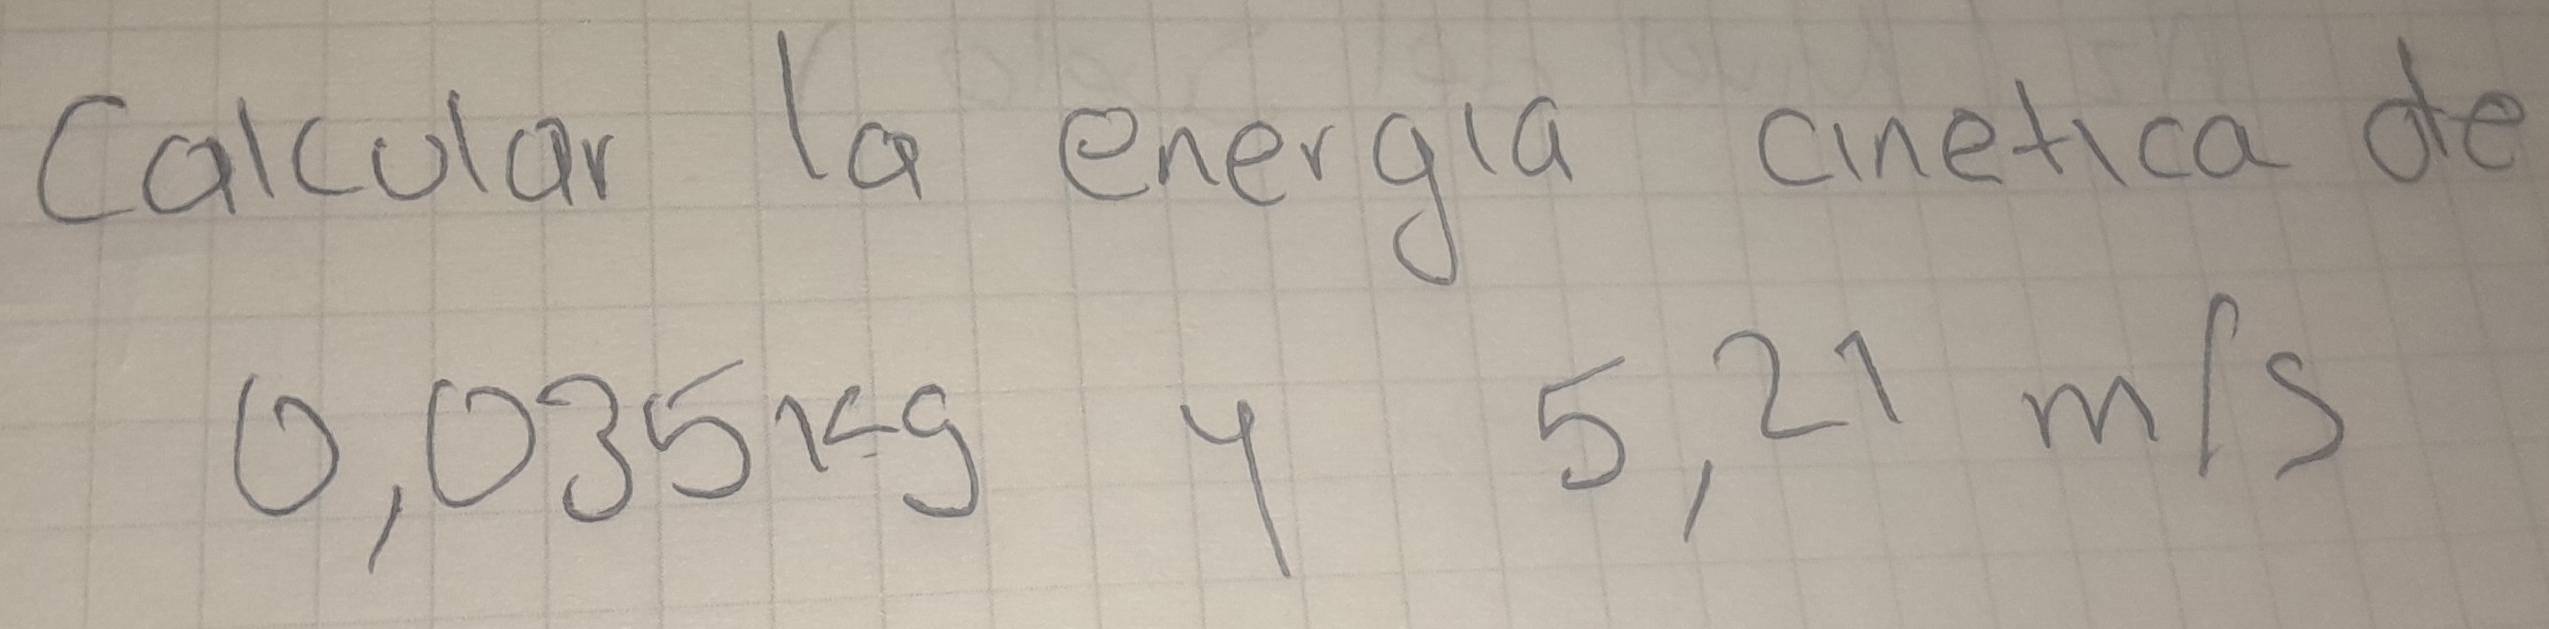 Calcular la energia cinetica de
0,035 kg y 5,21 m/s